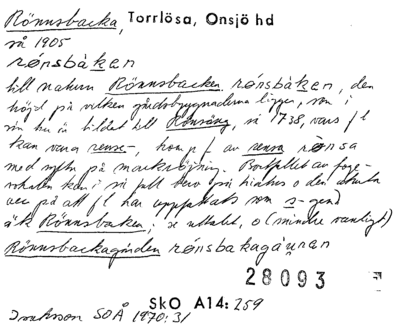 Rönnsbacka, Torrlösa, Onsjö hd
så 1905
rönsbàken
till naturn Rönnsbacken rönsbàken, den
höjd på vilken gårdsbyggnaderna ligger, som i
sin tur är bildat till Rönsäng, så 1738, vars fl
kan vara rense-, hop p f av rensa rönsa
med syftn på markröjning. Bortfallet av
kan i så fall bero på o den
på att fl har uppfattats som s-gend
äk Rönnsbacken; se uttalet, o (mindre vanligt)
Rönnsbackagården rönsbakagáṷnan
28093
SkO A14: 259
Isaksson SOÅ 1970:31